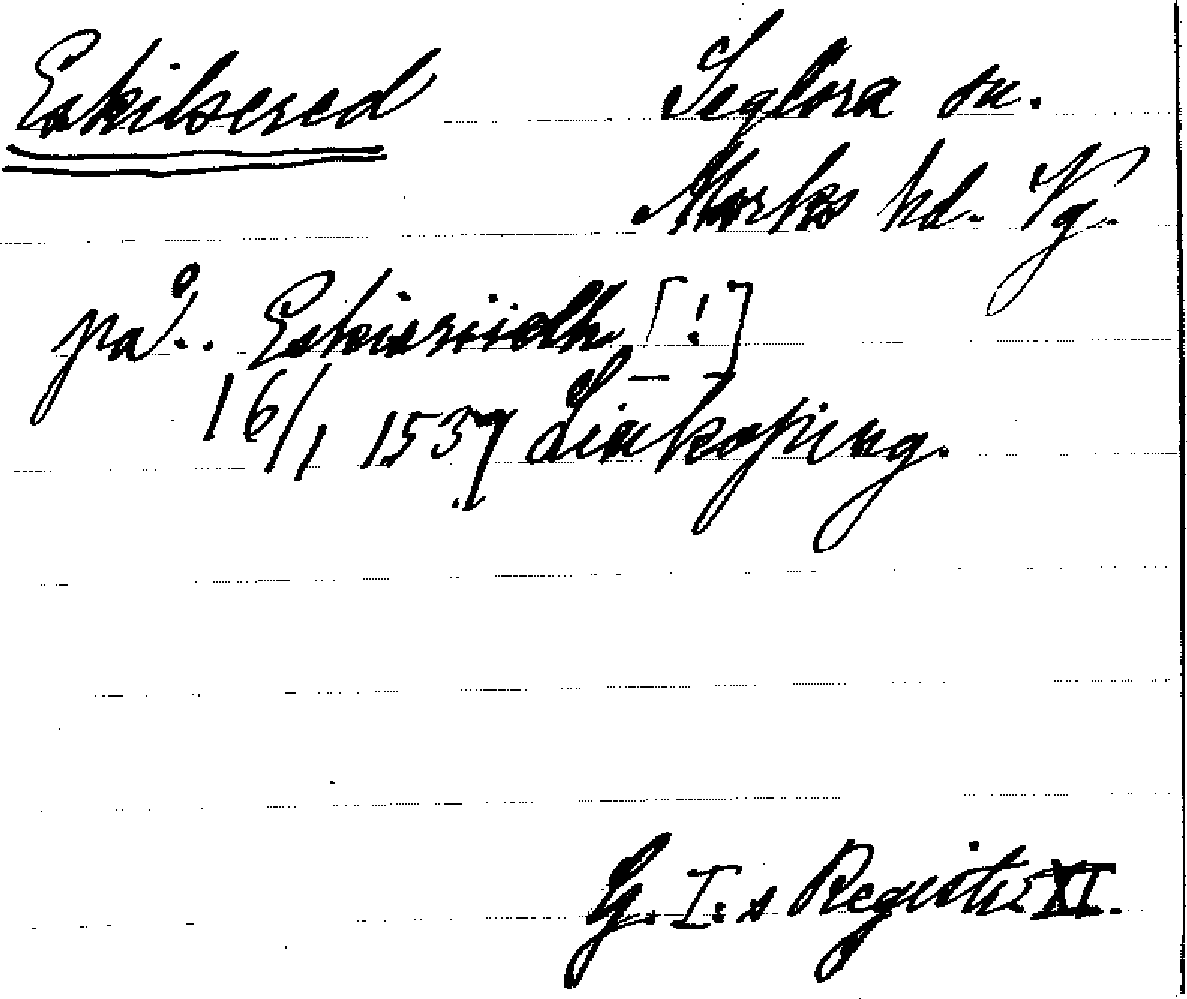 Eskilsered Seglora sn.
Marks hd. Vg.
på.. Eskisriidh [!]
16/1 1537 Linköping.
G. I:s Registr. XI.